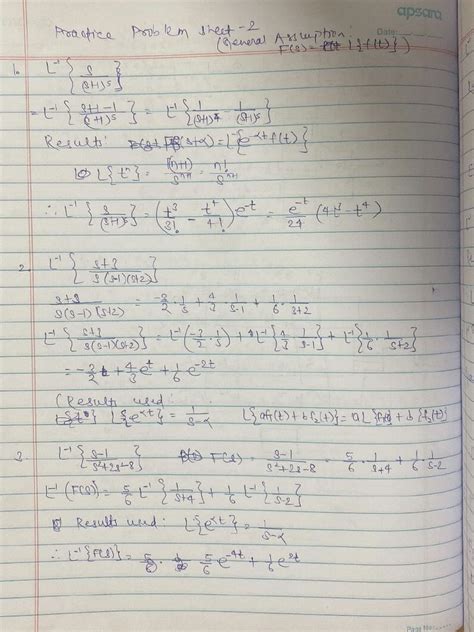 apsara
Date:
Practice Problem Sheet-2
(General Assumption
F(s) = L{f(t)})
1. L⁻¹{s/(s+1)⁵}
= L⁻¹{(s+1-1)/(s+1)⁵} = L⁻¹{1/(s+1)⁴ - 1/(s+1)⁵}
Results: F(s+α) = L{e^-αt f(t)}
L{tⁿ} = Γ(n+1)/sⁿ⁺¹ = n!/sⁿ⁺¹
∴ L⁻¹{s/(s+1)⁵} = (t³/3! - t⁴/4!) e^-t = e^-t/24 (4t³ - t⁴)
2. L⁻¹{(s+3)/(s(s-1)(s+2))}
(s+3)/(s(s-1)(s+2)) = -3/2 · 1/s + 4/3 · 1/(s-1) + 1/6 · 1/(s+2)
L⁻¹{(s+3)/(s(s-1)(s+2))} = L⁻¹(-3/2 · 1/s) + L⁻¹{4/3 · 1/(s-1)} + L⁻¹{1/6 · 1/(s+2)}
= -3/2 + 4/3 e^t + 1/6 e^-2t
(Results used:
L{e^αt} = 1/(s-α) L{af₁(t) + bf₂(t)} = aL{f₁(t)} + bL{f₂(t)}
3. L⁻¹{(s-1)/(s²+2s-8)} F(s) = (s-1)/(s²+2s-8) = 5/6 · 1/(s+4) + 1/6 · 1/(s-2)
L⁻¹(F(s)) = 5/6 L⁻¹{1/(s+4)} + 1/6 L⁻¹{1/(s-2)}
Results used: L{e^αt} = 1/(s-α)
∴ L⁻¹{F(s)} = 5/6 e^-4t + 1/6 e^2t